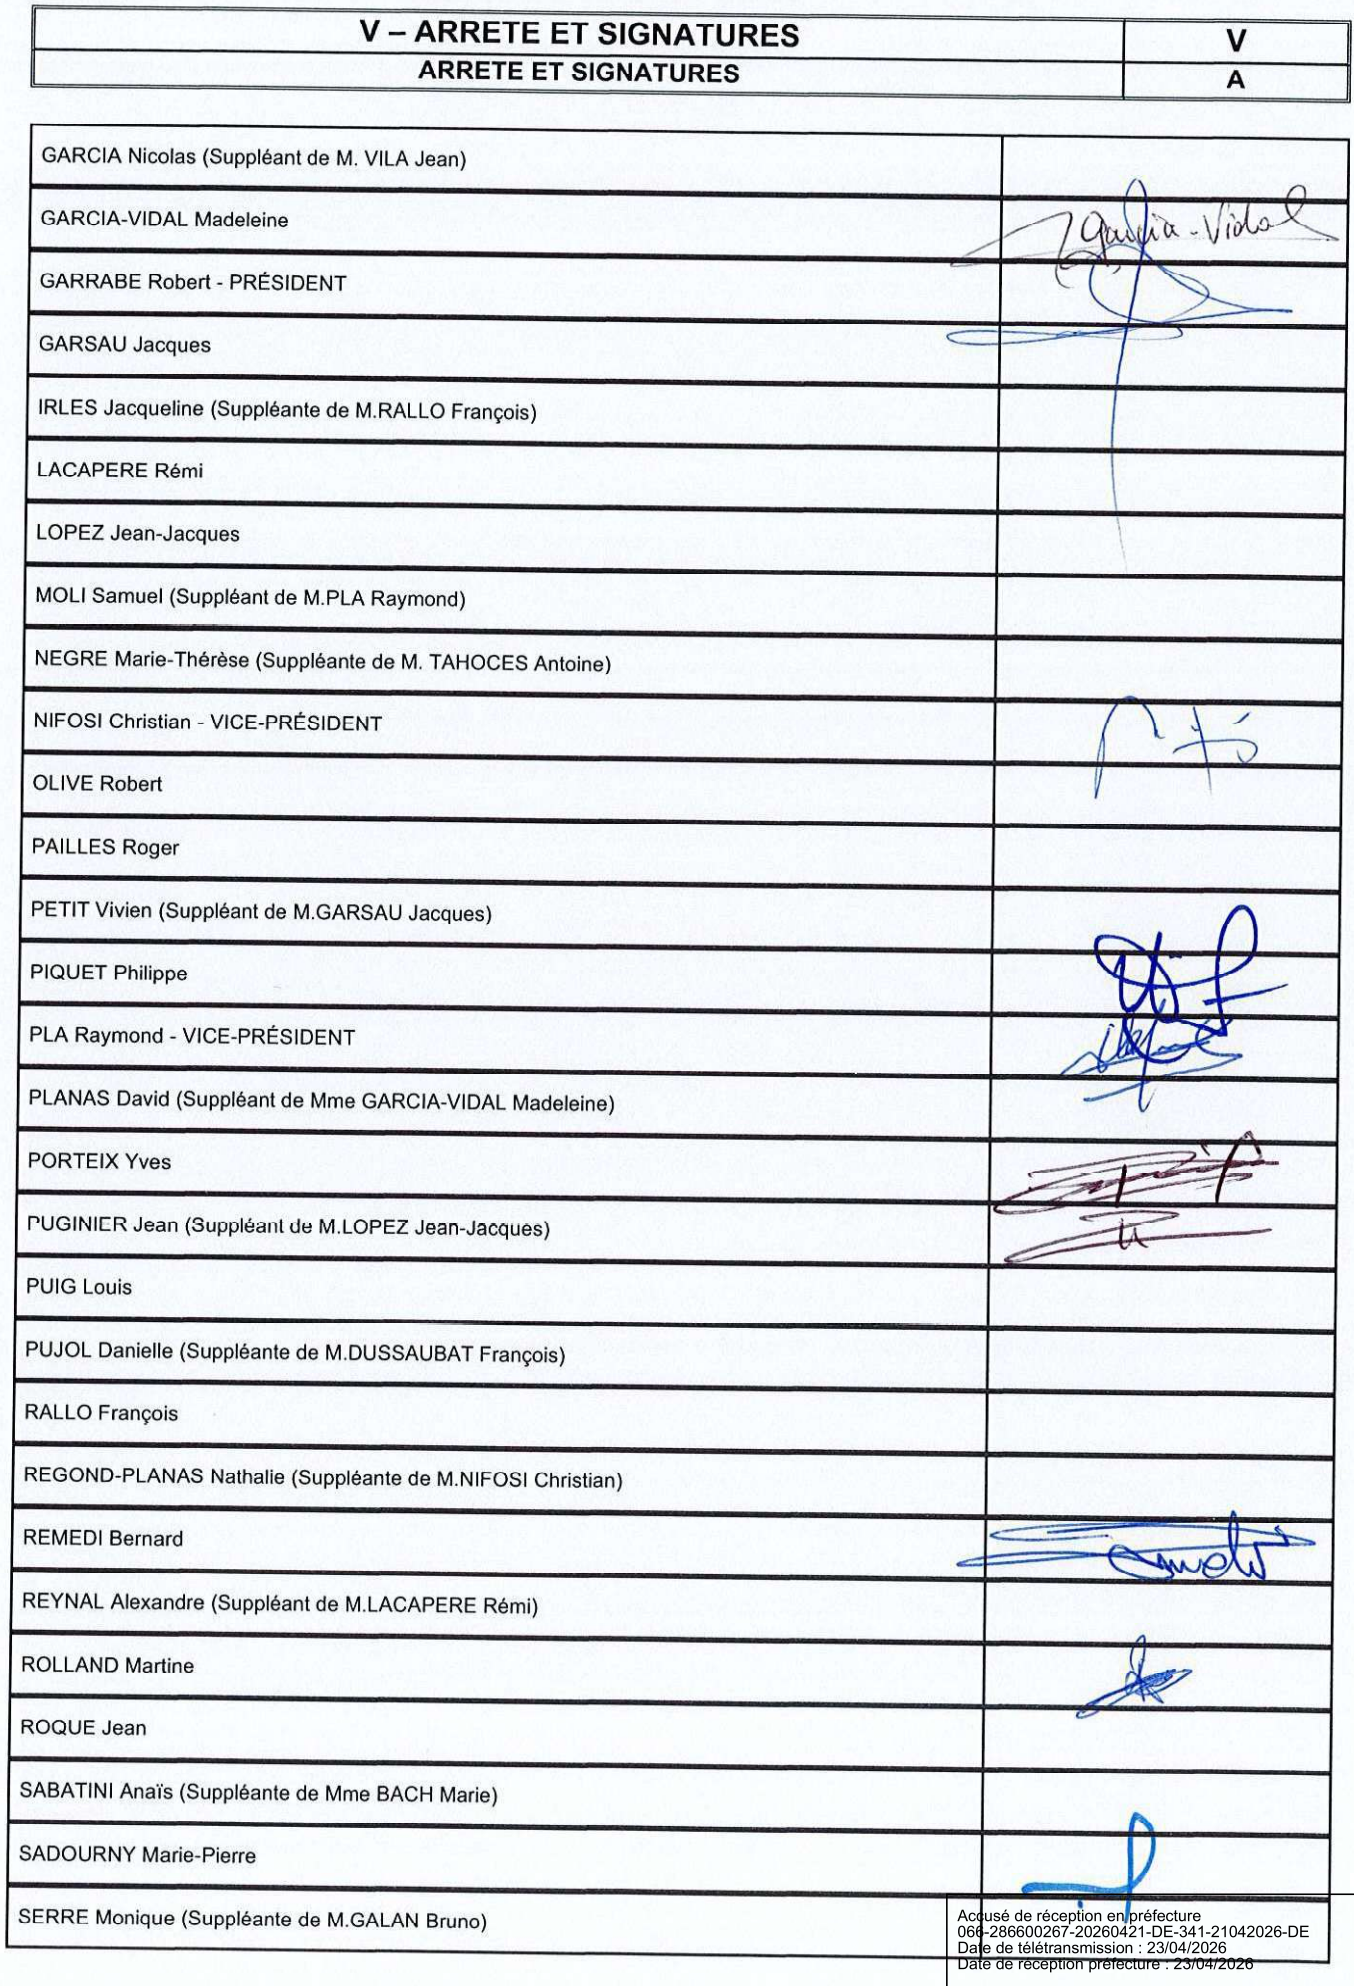 V – ARRETE ET SIGNATURES
V
ARRETE ET SIGNATURES
A
GARCIA Nicolas (Suppléant de M. VILA Jean)
GARCIA-VIDAL Madeleine
Garcia-Vidal
GARRABE Robert - PRÉSIDENT
GARSAU Jacques
IRLES Jacqueline (Suppléante de M.RALLO François)
LACAPERE Rémi
LOPEZ Jean-Jacques
MOLI Samuel (Suppléant de M.PLA Raymond)
NEGRE Marie-Thérèse (Suppléante de M. TAHOCES Antoine)
NIFOSI Christian - VICE-PRÉSIDENT
OLIVE Robert
PAILLES Roger
PETIT Vivien (Suppléant de M.GARSAU Jacques)
PIQUET Philippe
PLA Raymond - VICE-PRÉSIDENT
PLANAS David (Suppléant de Mme GARCIA-VIDAL Madeleine)
PORTEIX Yves
PUGINIER Jean (Suppléant de M.LOPEZ Jean-Jacques)
PUIG Louis
PUJOL Danielle (Suppléante de M.DUSSAUBAT François)
RALLO François
REGOND-PLANAS Nathalie (Suppléante de M.NIFOSI Christian)
REMEDI Bernard
REYNAL Alexandre (Suppléant de M.LACAPERE Rémi)
ROLLAND Martine
ROQUE Jean
SABATINI Anaïs (Suppléante de Mme BACH Marie)
SADOURNY Marie-Pierre
SERRE Monique (Suppléante de M.GALAN Bruno)
Accusé de réception en préfecture
066-286600267-20260421-DE-341-21042026-DE
Date de télétransmission : 23/04/2026
Date de réception préfecture : 23/04/2026